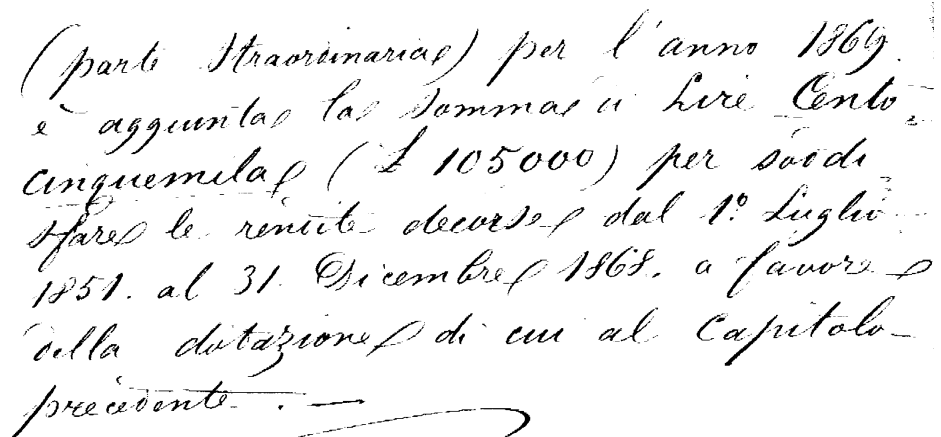 (parte Straordinaria) per l'anno 1869.
è aggiunta la somma di Lire Cento=
cinquemila (£ 105000) per soddi
sfare le rendite decorse dal 1º Luglio
1851. al 31. Dicembre 1868. a favore
della dotazione di cui al Capitolo
precedente. —